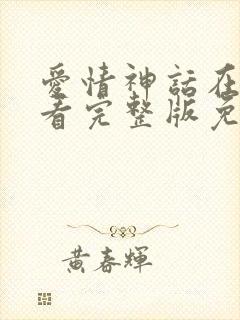 愛情神話在
看完整版免
黃春輝